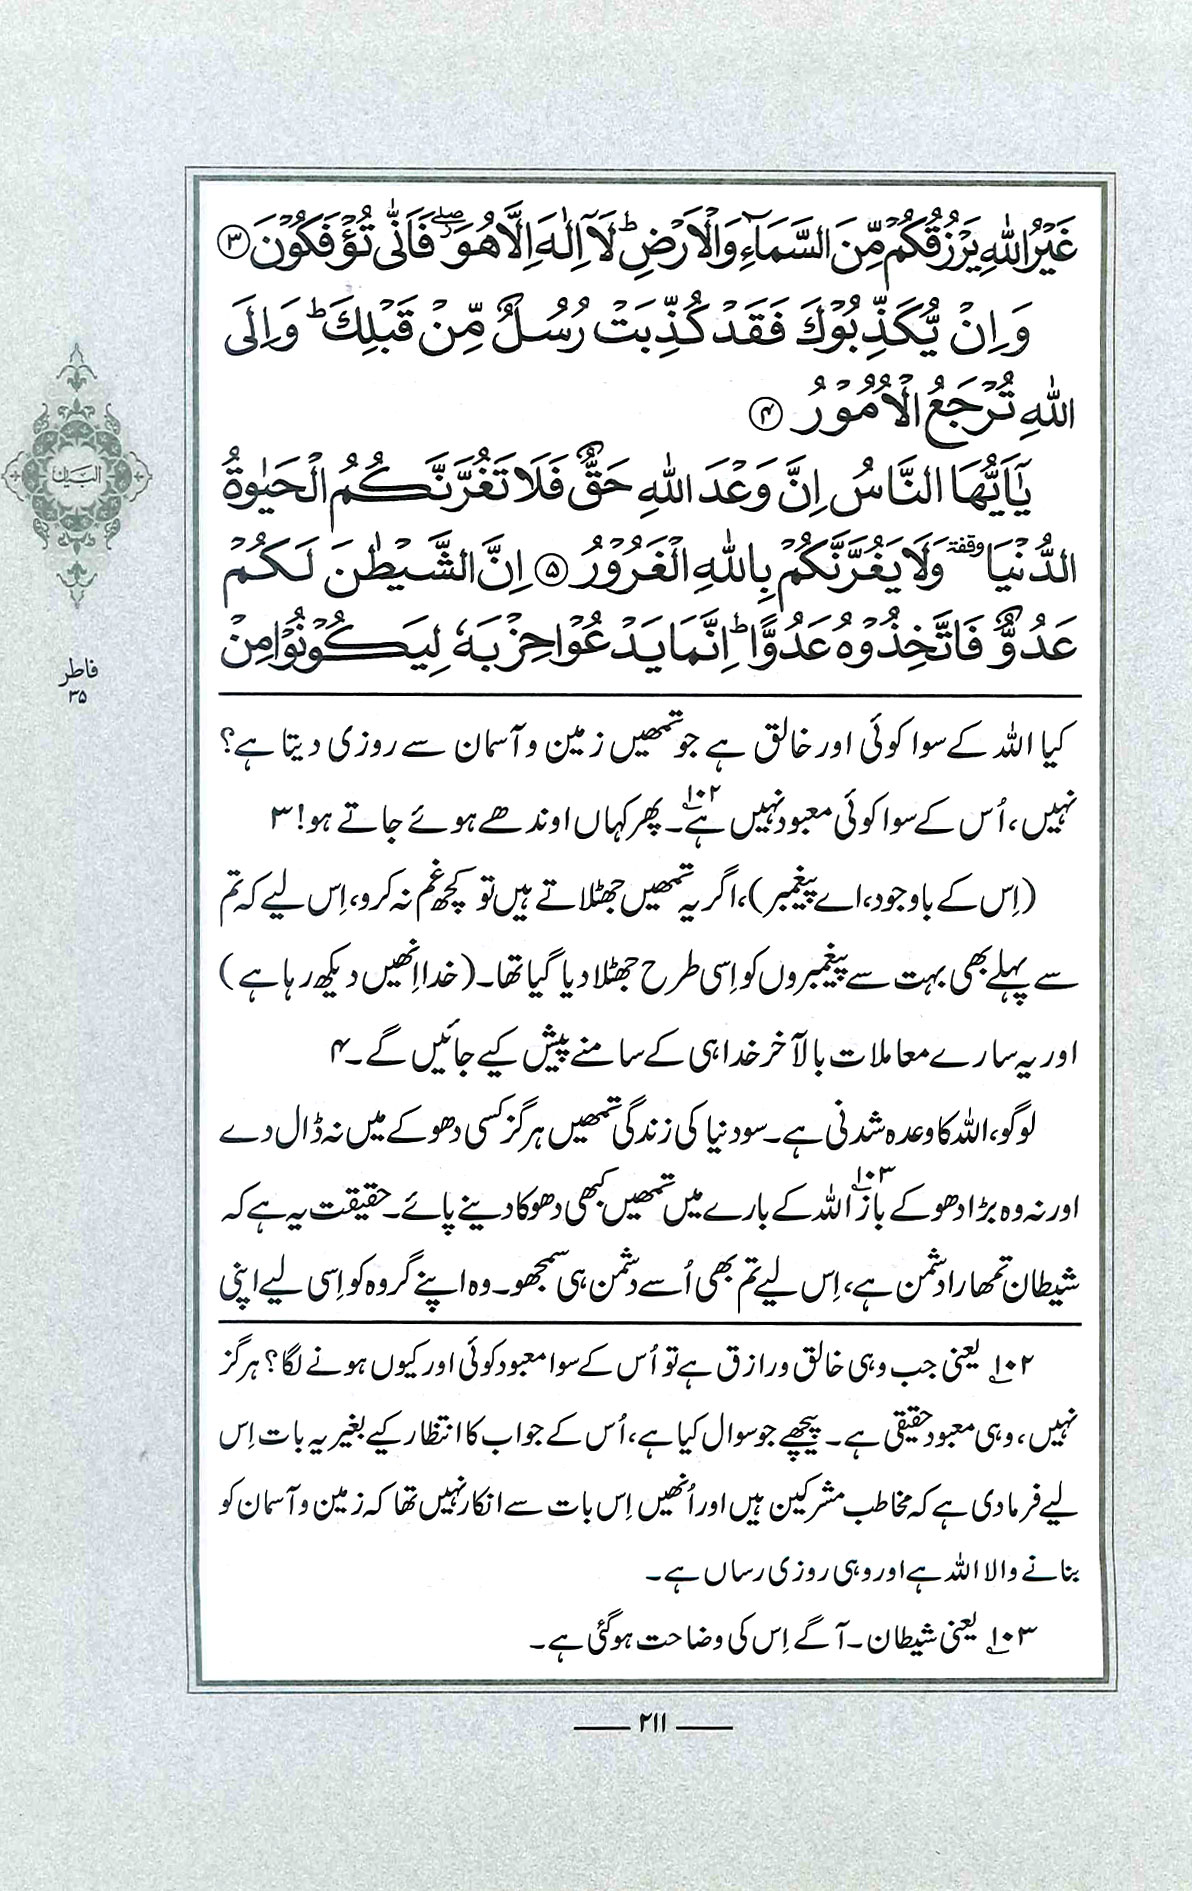 غَيْرُ اللّٰهِ يَرْزُقُكُمْ مِّنَ السَّمَآءِ وَالْاَرْضِ ؕ لَاۤ اِلٰهَ اِلَّا هُوَ ۖ٘ فَاَنّٰى تُؤْفَكُوْنَ ﴿۳﴾
وَاِنْ يُّكَذِّبُوْكَ فَقَدْ كُذِّبَتْ رُسُلٌ مِّنْ قَبْلِكَ ؕ وَاِلَى
اللّٰهِ تُرْجَعُ الْاُمُوْرُ ﴿۴﴾
يٰۤاَيُّهَا النَّاسُ اِنَّ وَعْدَ اللّٰهِ حَقٌّ فَلَا تَغُرَّنَّكُمُ الْحَيٰوةُ
الدُّنْيَا وقفة وَلَا يَغُرَّنَّكُمْ بِاللّٰهِ الْغَرُوْرُ ﴿۵﴾ اِنَّ الشَّيْطٰنَ لَكُمْ
عَدُوٌّ فَاتَّخِذُوْهُ عَدُوًّا ؕ اِنَّمَا يَدْعُوْا حِزْبَهٗ لِيَكُوْنُوْا مِنْ
البيان
فاطر
۳۵
کیا اللہ کے سوا کوئی اور خالق ہے جو تمھیں زمین و آسمان سے روزی دیتا ہے؟
نہیں، اُس کے سوا کوئی معبود نہیں ہے۱۰۲۔ پھر کہاں اوندھے ہوئے جاتے ہو! ۳
(اِس کے باوجود، اے پیغمبر)، اگر یہ تمھیں جھٹلاتے ہیں تو کچھ غم نہ کرو، اِس لیے کہ تم
سے پہلے بھی بہت سے پیغمبروں کو اِسی طرح جھٹلا دیا گیا تھا۔ (خدا اِنھیں دیکھ رہا ہے)
اور یہ سارے معاملات بالآخر خدا ہی کے سامنے پیش کیے جائیں گے۔ ۴
لوگو، اللہ کا وعدہ شدنی ہے۔ سو دنیا کی زندگی تمھیں ہرگز کسی دھوکے میں نہ ڈال دے
اور نہ وہ بڑا دھوکے باز۱۰۳ اللہ کے بارے میں تمھیں کبھی دھوکا دینے پائے۔ حقیقت یہ ہے کہ
شیطان تمھارا دشمن ہے، اِس لیے تم بھی اُسے دشمن ہی سمجھو۔ وہ اپنے گروہ کو اِسی لیے اپنی
۱۰۲ یعنی جب وہی خالق و رازق ہے تو اُس کے سوا معبود کوئی اور کیوں ہونے لگا؟ ہرگز
نہیں، وہی معبود حقیقی ہے۔ پیچھے جو سوال کیا ہے، اُس کے جواب کا انتظار کیے بغیر یہ بات اِس
لیے فرما دی ہے کہ مخاطب مشرکین ہیں اور اُنھیں اِس بات سے انکار نہیں تھا کہ زمین و آسمان کو
بنانے والا اللہ ہے اور وہی روزی رساں ہے۔
۱۰۳ یعنی شیطان۔ آگے اِس کی وضاحت ہو گئی ہے۔
۲۱۱